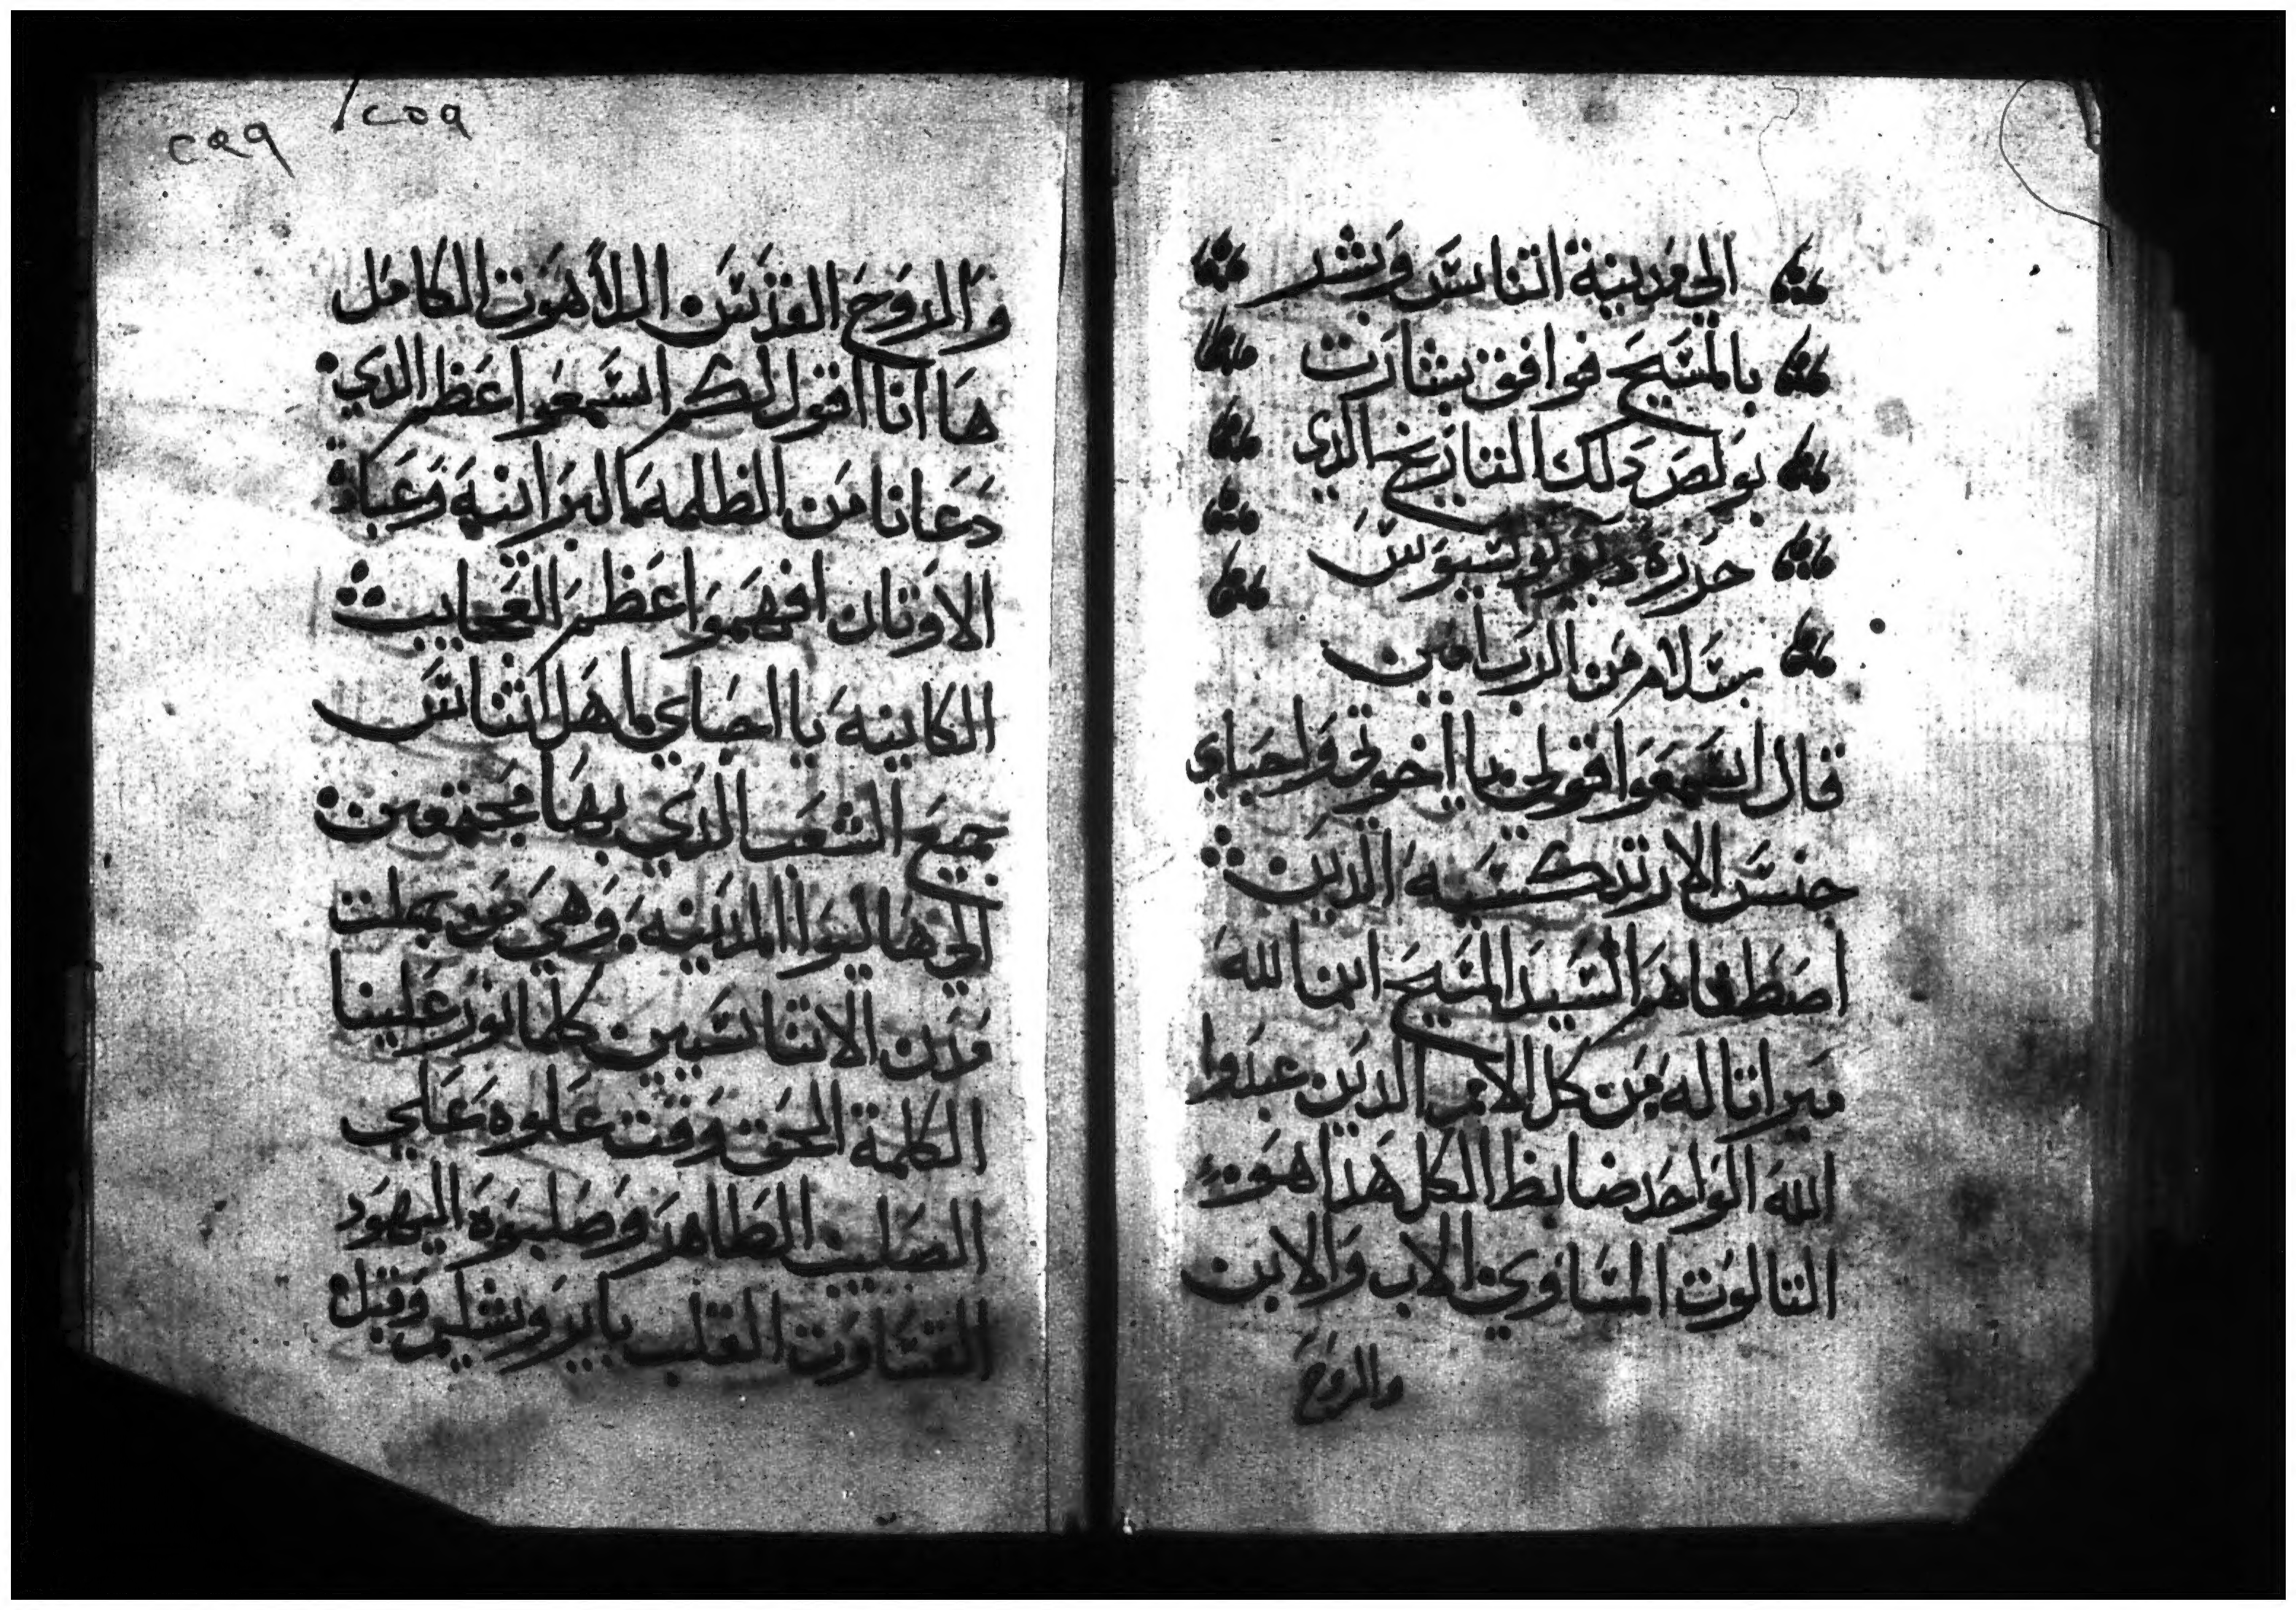 الي مدينة اتناس وبشر
بالمسيح فوافق بشارت
بولص دلك التاريخ الدي
حرره ديونوسيوس
بسلام من الرب امين
قال اسمعوا قولي يا اخوتي واحباي
جنس الارتدكسيه الدين
اصطفاهم السيد المسيح ابن الله
ميراتا له من كل الامم الدين عبدوا
الله الواحد ضابط الكل هدا هو
التالوت المساوي الاب والابن
والروح
٢٩٩ / ٢٥٩
والروح القدس اللاهوت الكامل
ها انا اقول لكم اسمعوا اعظم الدي
دعانا من الظلمه البرانيه وعبادة
الاوتان افهموا اعظم العجايب
الكاينه يا احباي اهل اتناس
جميع الشعب الدي بها مجتمعين
الي هاليوا المدينه وهي من جملت
مدن الاتناسيين كلما نور علينا
الكلمة الحق وقت علوه علي
الصليب الطاهر وصلبوه اليهود
القساوت القلب بايروشليم وقبل